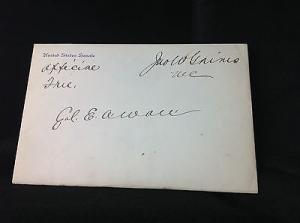 United States Senate
Official
Free
Jno W Gaines
MC
Gol. E.